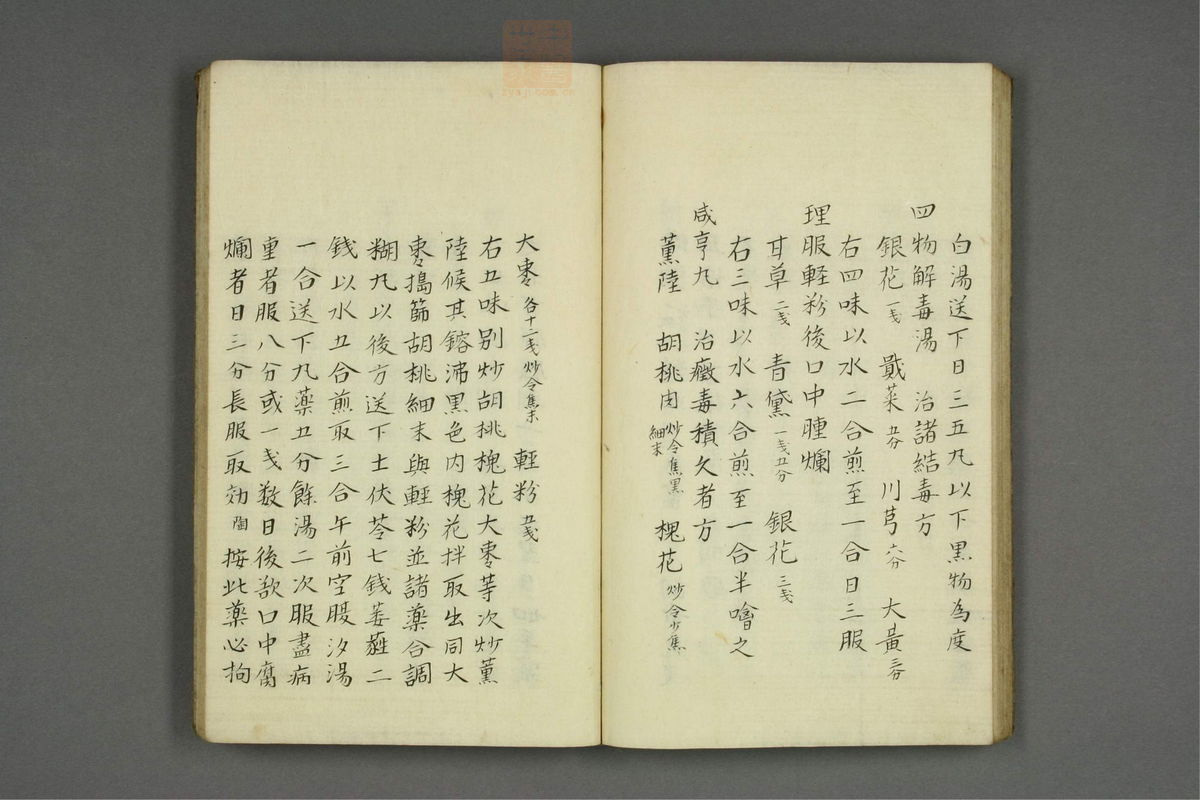 白湯送下日三五丸以下黒物為度
四物解毒湯 治諸結毒方
銀花 一戋 蕺菜 五分 川芎 六分 大黃 三分
右四味以水二合煎至一合日三服
理服軽粉後口中腫爛
甘草 二戋 青黛 一戋五分 銀花 三戋
右三味以水六合煎至一合半噙之
咸亨丸 治癥毒積久者方
薫陸 胡桃肉 炒令焦黒細末 槐花 炒令少焦
大棗 各十二戋炒令焦末 輕粉 五戋
右五味別炒胡桃槐花大棗等次炒薫
陸候其鎔沸黒色内槐花拌取出同大
棗搗篩胡桃細末與輕粉並諸藥合調
糊丸以後方送下土伏苓七錢萎蕤二
錢以水五合煎取三合午前空腹汐湯
一合送下丸藥五分餘湯二次服盡病
重者服八分或一戋数日後歃口中腐
爛者日三分長服取効 陶 按此藥必拘